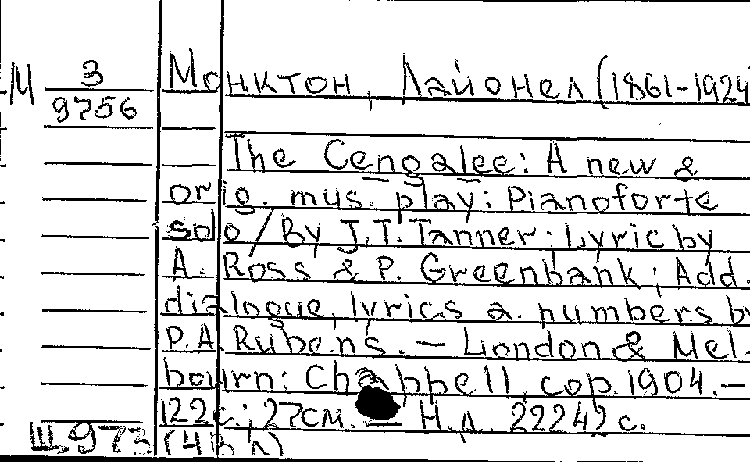 М 3 Монктон, Лайонел (1861-1924
9756
The Cengalee: A new &
orig. mus. play: Pianoforte
solo / By J.T. Tanner; Lyric by
A. Ross & P. Greenbank; Add.
dialogue, lyrics a. numbers by
P.A. Rubens. — London & Mel-
bourn: Chappell, cop. 1904. —
122с.; 27см. — Н.д. 22242 с.
Ш973